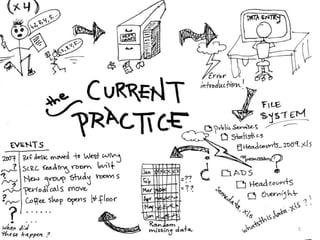 (x 4)
1,2,3,4, F...
DATA ENTRY
Error
introduction!
the CURRENT
PRACTICE
FILE
SYSTEM
Public Services
Statistics
Headcounts_2009.xls
ADS
Headcounts
Overnight
Somedata.xls
whatsthisdata.xls?!
EVENTS
2007 Ref desk moved to West Wing
SCRC reading room built
New group study rooms
Periodicals move
Coffee shop opens 1st floor
?
when did
these happen?
Jan
Feb
Mar
Apr
May
Jun
???
???
Random
missing data